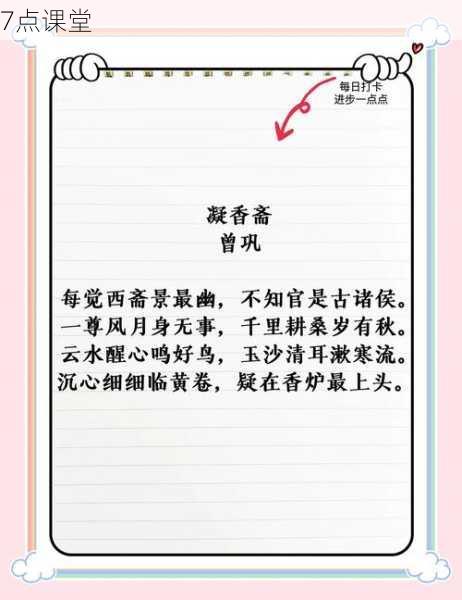 7点课堂
每日打卡
进步一点点
凝香斋
曾巩
每觉西斋景最幽，不知官是古诸侯。
一尊风月身无事，千里耕桑岁有秋。
云水醒心鸣好鸟，玉沙清耳漱寒流。
沉心细细临黄卷，疑在香炉最上头。